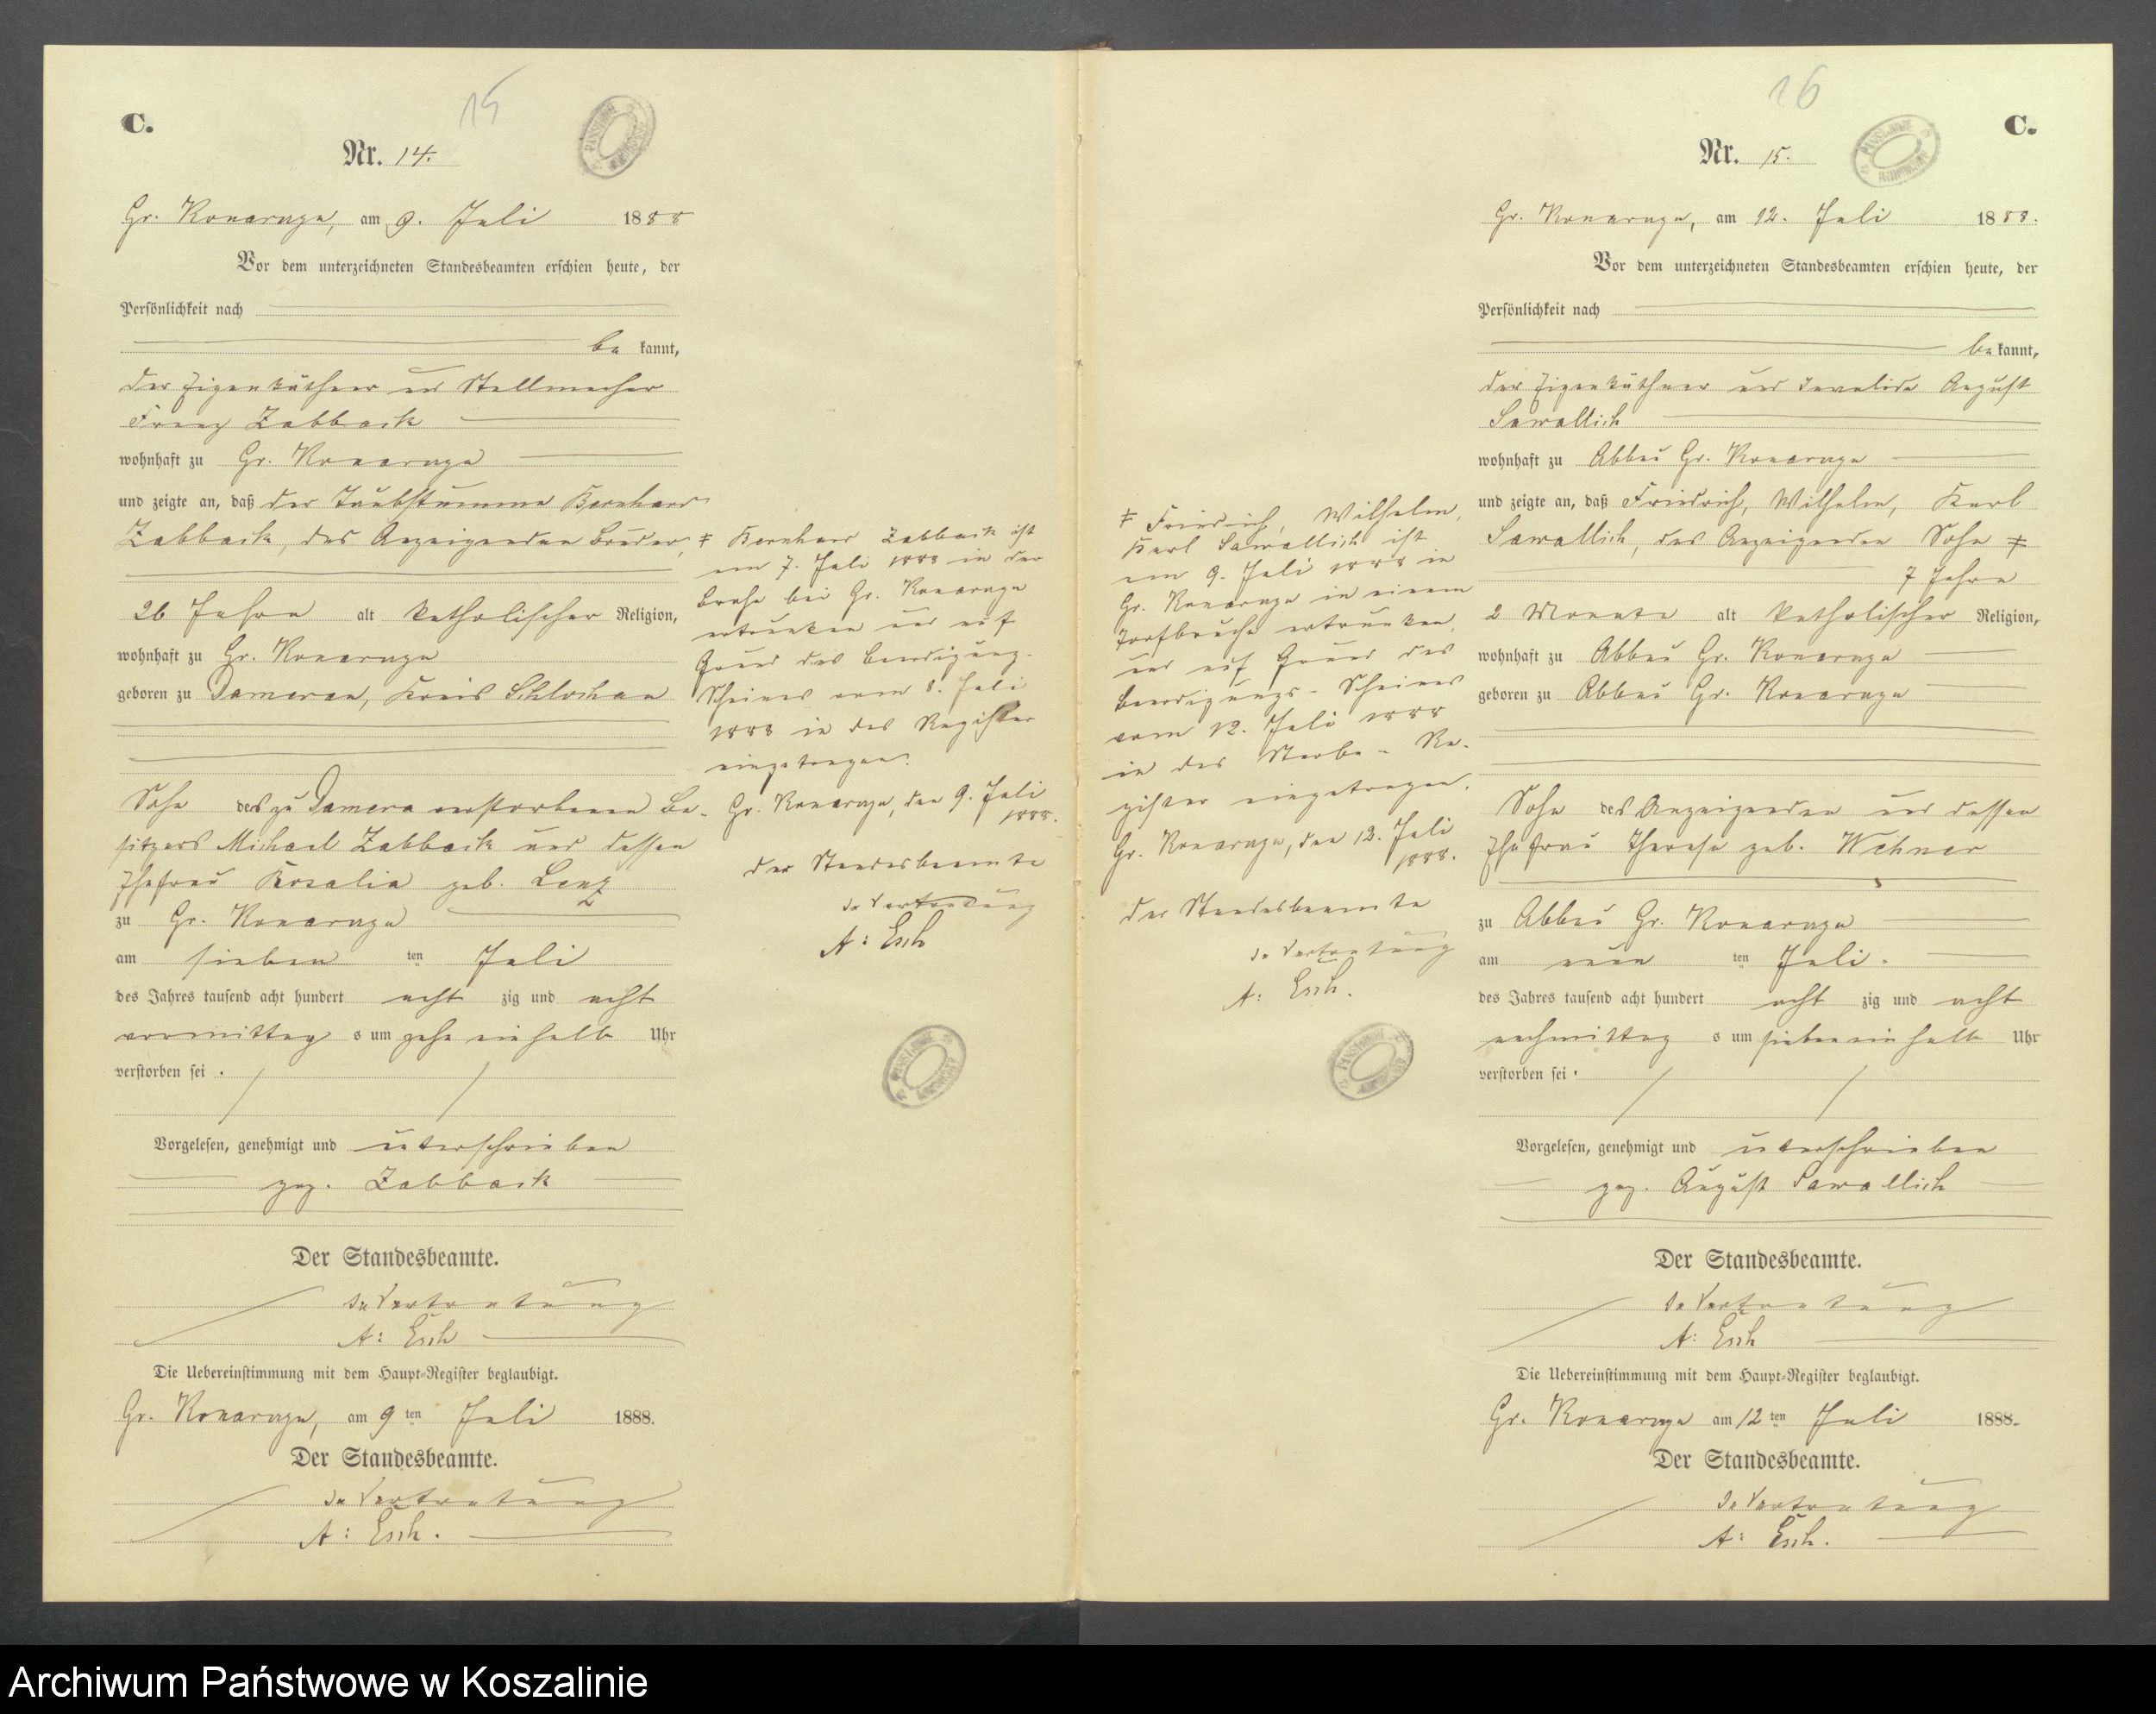 15
C.
Nr. 14.
Gr. Konarzyn, am 9. Juli 1888
Vor dem unterzeichneten Standesbeamten erschien heute, der
Persönlichkeit nach
be kannt,
der Eigenkäthner und Stellmacher
Franz Zabback
wohnhaft zu Gr. Konarzyn
und zeigte an, daß der Taubstumme Bernhard
Zabback, des Anzeigenden Bruder, ‡
26 Jahre alt katholischer Religion,
wohnhaft zu Gr. Konarzyn
geboren zu Damerau, Kreis Schlochau
Sohn des zu Damerau verstorbenen Be-
sitzers Michael Zabback und dessen
Ehefrau Rosalia geb. Lenz
zu Gr. Konarzyn
am sieben ten Juli
des Jahres tausend acht hundert acht zig und acht
vormittag s um zehn einhalb Uhr
verstorben sei.
Vorgelesen, genehmigt und unterschrieben
gez. Zabback
Der Standesbeamte.
In Vertretung
A: Esch
Die Uebereinstimmung mit dem Haupt-Register beglaubigt.
Gr. Konarzyn, am 9 ten Juli 1888.
Der Standesbeamte.
In Vertretung
A: Esch.
‡ Bernhard Zabback ist
am 7. Juli 1888 in der
Brahe bei Gr. Konarzyn
ertrunken und auf
Grund des Beerdigung-
Scheines vom 8. Juli
1888 in das Register
eingetragen.
Gr. Konarzyn, den 9. Juli
1888.
Der Standesbeamte
In Vertretung
A: Esch
16
C.
Nr. 15.
Gr. Konarzyn, am 12. Juli 1888.
Vor dem unterzeichneten Standesbeamten erschien heute, der
Persönlichkeit nach
be kannt,
der Eigenkäthner und Invalide August
Sawallich
wohnhaft zu Abbau Gr. Konarzyn
und zeigte an, daß Friedrich, Wilhelm, Karl
Sawallich, des Anzeigenden Sohn ‡
7 Jahre
2 Monate alt katholischer Religion,
wohnhaft zu Abbau Gr. Konarzyn
geboren zu Abbau Gr. Konarzyn
Sohn des Anzeigenden und dessen
Ehefrau Therese geb. Wehner
zu Abbau Gr. Konarzyn
am neun ten Juli.
des Jahres tausend acht hundert acht zig und acht
nachmittag s um sieben einhalb Uhr
verstorben sei.
Vorgelesen, genehmigt und unterschrieben
gez. August Sawallich
Der Standesbeamte.
In Vertretung
A: Esch
Die Uebereinstimmung mit dem Haupt-Register beglaubigt.
Gr. Konarzyn am 12 ten Juli 1888.
Der Standesbeamte.
In Vertretung
A: Esch.
‡ Friedrich, Wilhelm,
Karl Sawallich ist
am 9. Juli 1888 in
Gr. Konarzyn in einem
Torfbruche ertrunken,
und auf Grund des
Beerdigungs-Scheines
vom 12. Juli 1888
in das Sterbe-Re-
gister eingetragen.
Gr. Konarzyn, den 12. Juli
1888.
Der Standesbeamte
In Vertretung
A: Esch.
Archiwum Państwowe w Koszalinie